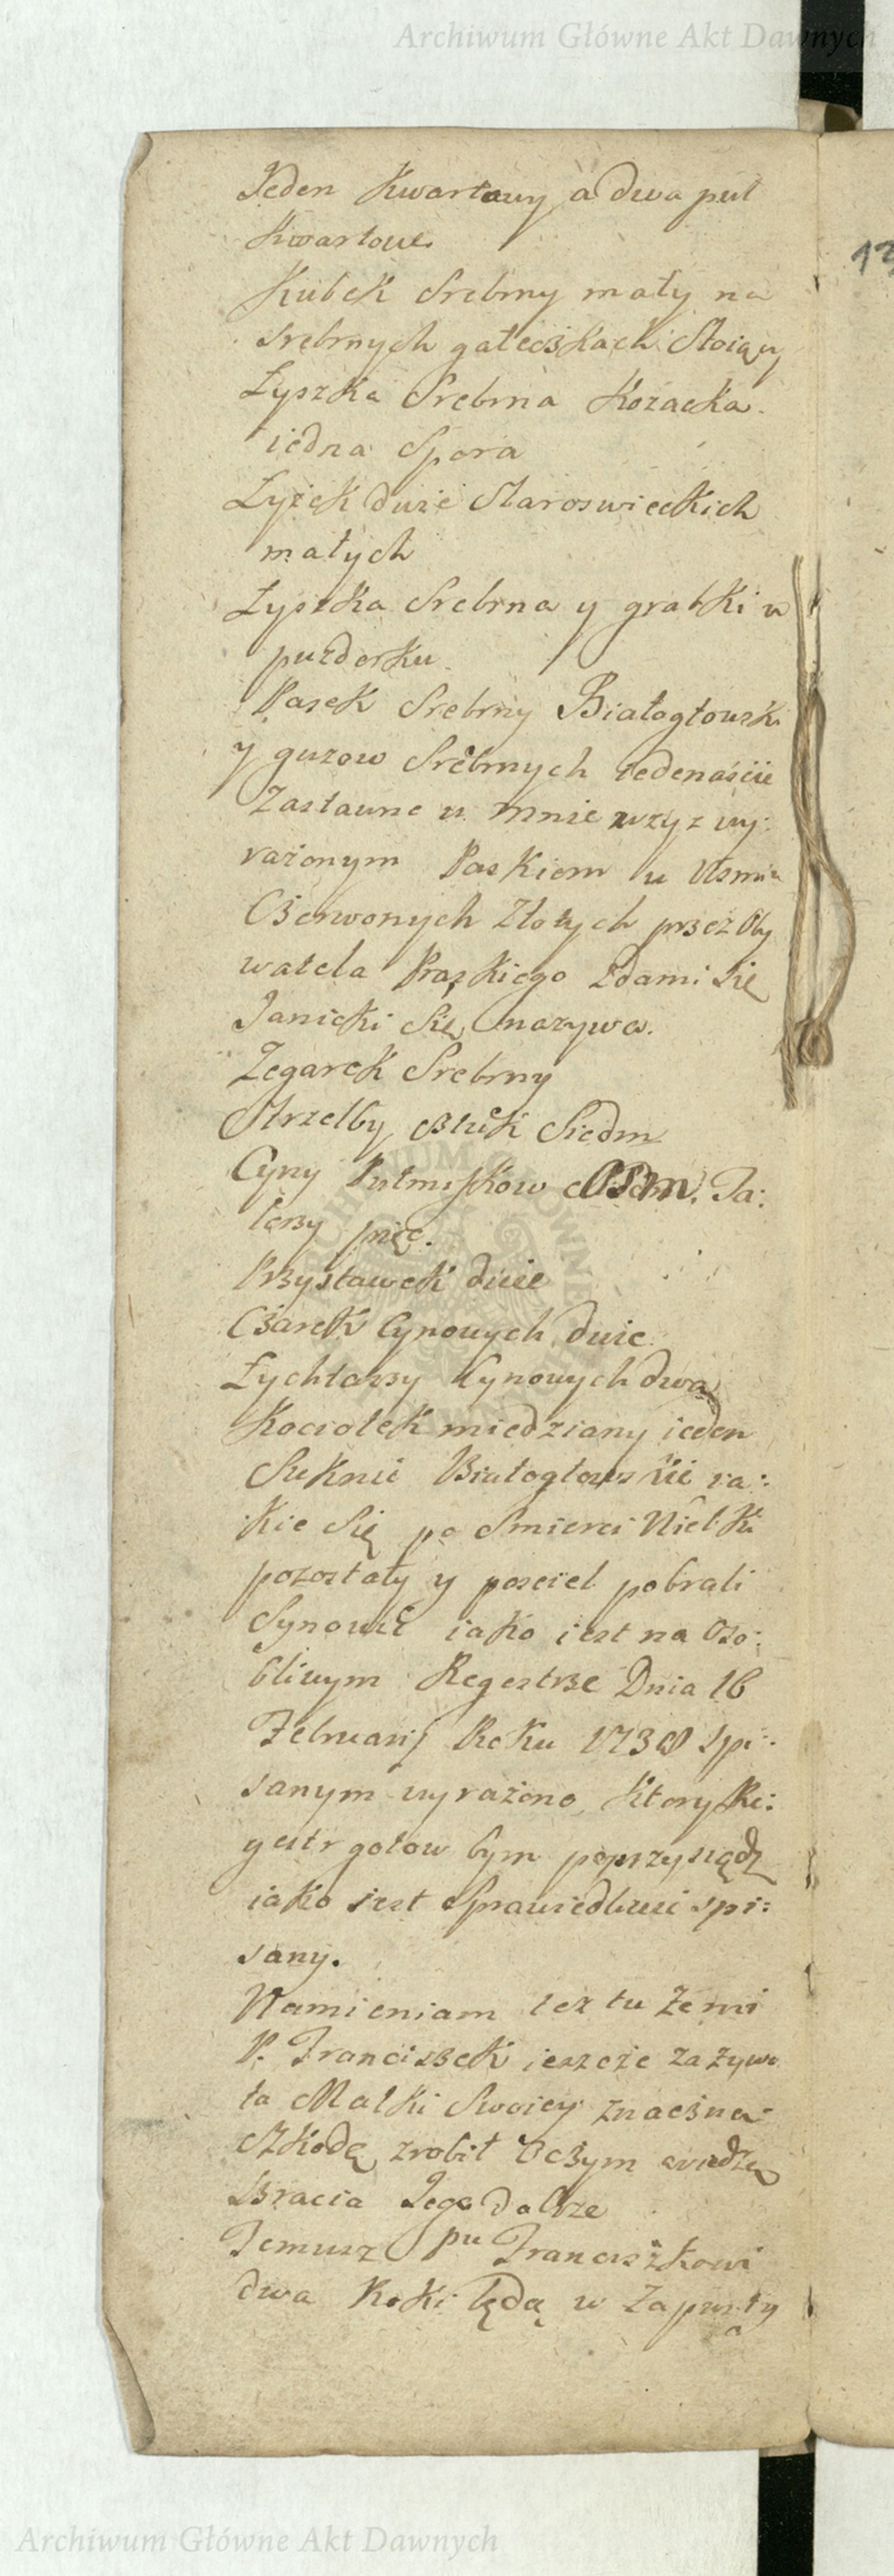 Archiwum Główne Akt Dawnych
Jeden Kwartowy a dwa puł
Kwartowe.
13
Kubek Srebrny mały na
srebrnych gałeczkach Stoiący
Łyszka Srebrna Kozacka
iedna Spora
Łyżek dwie Staroswieckich
małych
Łyszka Srebrna y grabki w
puzderku.
Pasek Srebrny Białogłowski
y guzow Srebrnych iedenascie
Zastawne u mnie wzyz wy:
rażonym Paskiem w Osmiu
Czerwonych Złotych przez Oby
watela Praskiego Zdami się
Janicki się nazywa.
Zegarek Srebrny
Strzelby sztuk Siedm
Cyny Pułmiskow Osm. Ta:
lerzy pięc.
Przystawek dwie
Czarek Cynowych dwie
Lychtarzy Cynowych dwa
Kociołek miedziany ieden
Suknie Białogłowskie ia:
kie się po Smierci Nieb: Ki
pozostały y posciel pobrali
Synowie iako iest na Oso:
bliwym Regestrze Dnia 16
Februarij Roku 1738 spi:
sanym wyrażono, Ktory Re:
gestr gotow bym poprzysiądz
iako iest Sprawiedliwie spi:
sany.
Namieniam tez tu Ze mi
P. Franciszek ieszcze za zywo
ta Matki Swoiey znaczną
szkodę zrobił Oczym wiedzą
Bracia Jego dobrze
Temusz Pu Franciszkowi
dwa Roki będą w Zapusty
a
Archiwum Główne Akt Dawnych